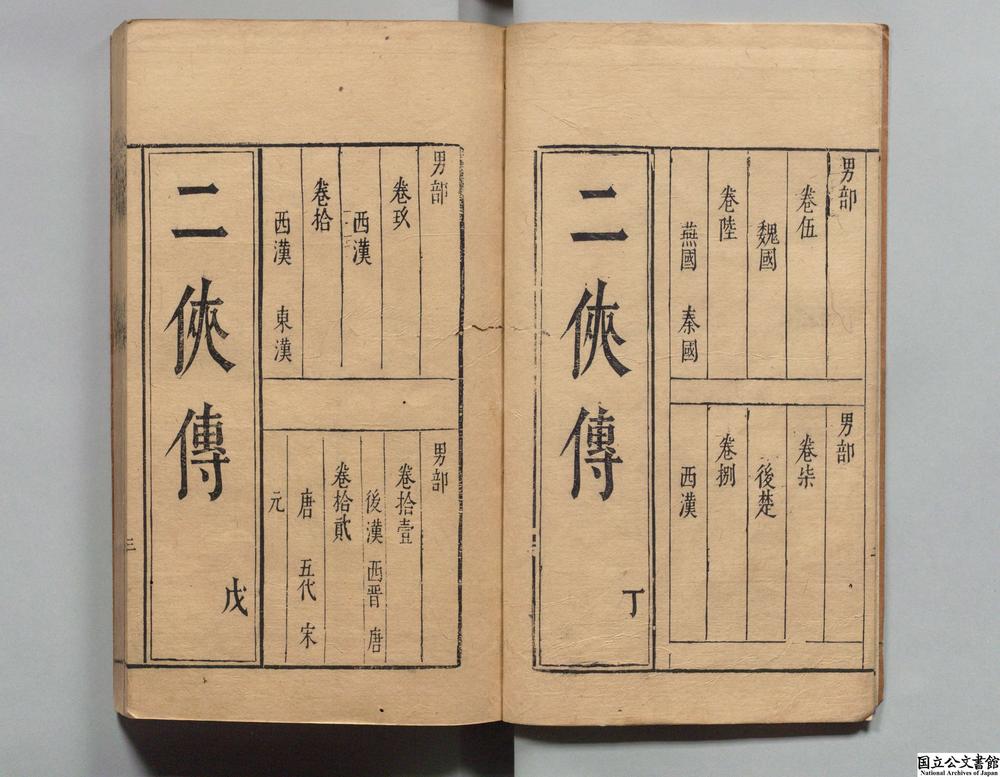 男部
卷伍
魏國
卷陸
燕國 秦國
男部
卷柒
後楚
卷捌
西漢
二俠傳
丁
男部
卷玖
西漢
卷拾
西漢 東漢
男部
卷拾壹
後漢 西晋 唐
卷拾貳
唐 五代 宋
元
二俠傳
戊
三
国立公文書館
National Archives of Japan